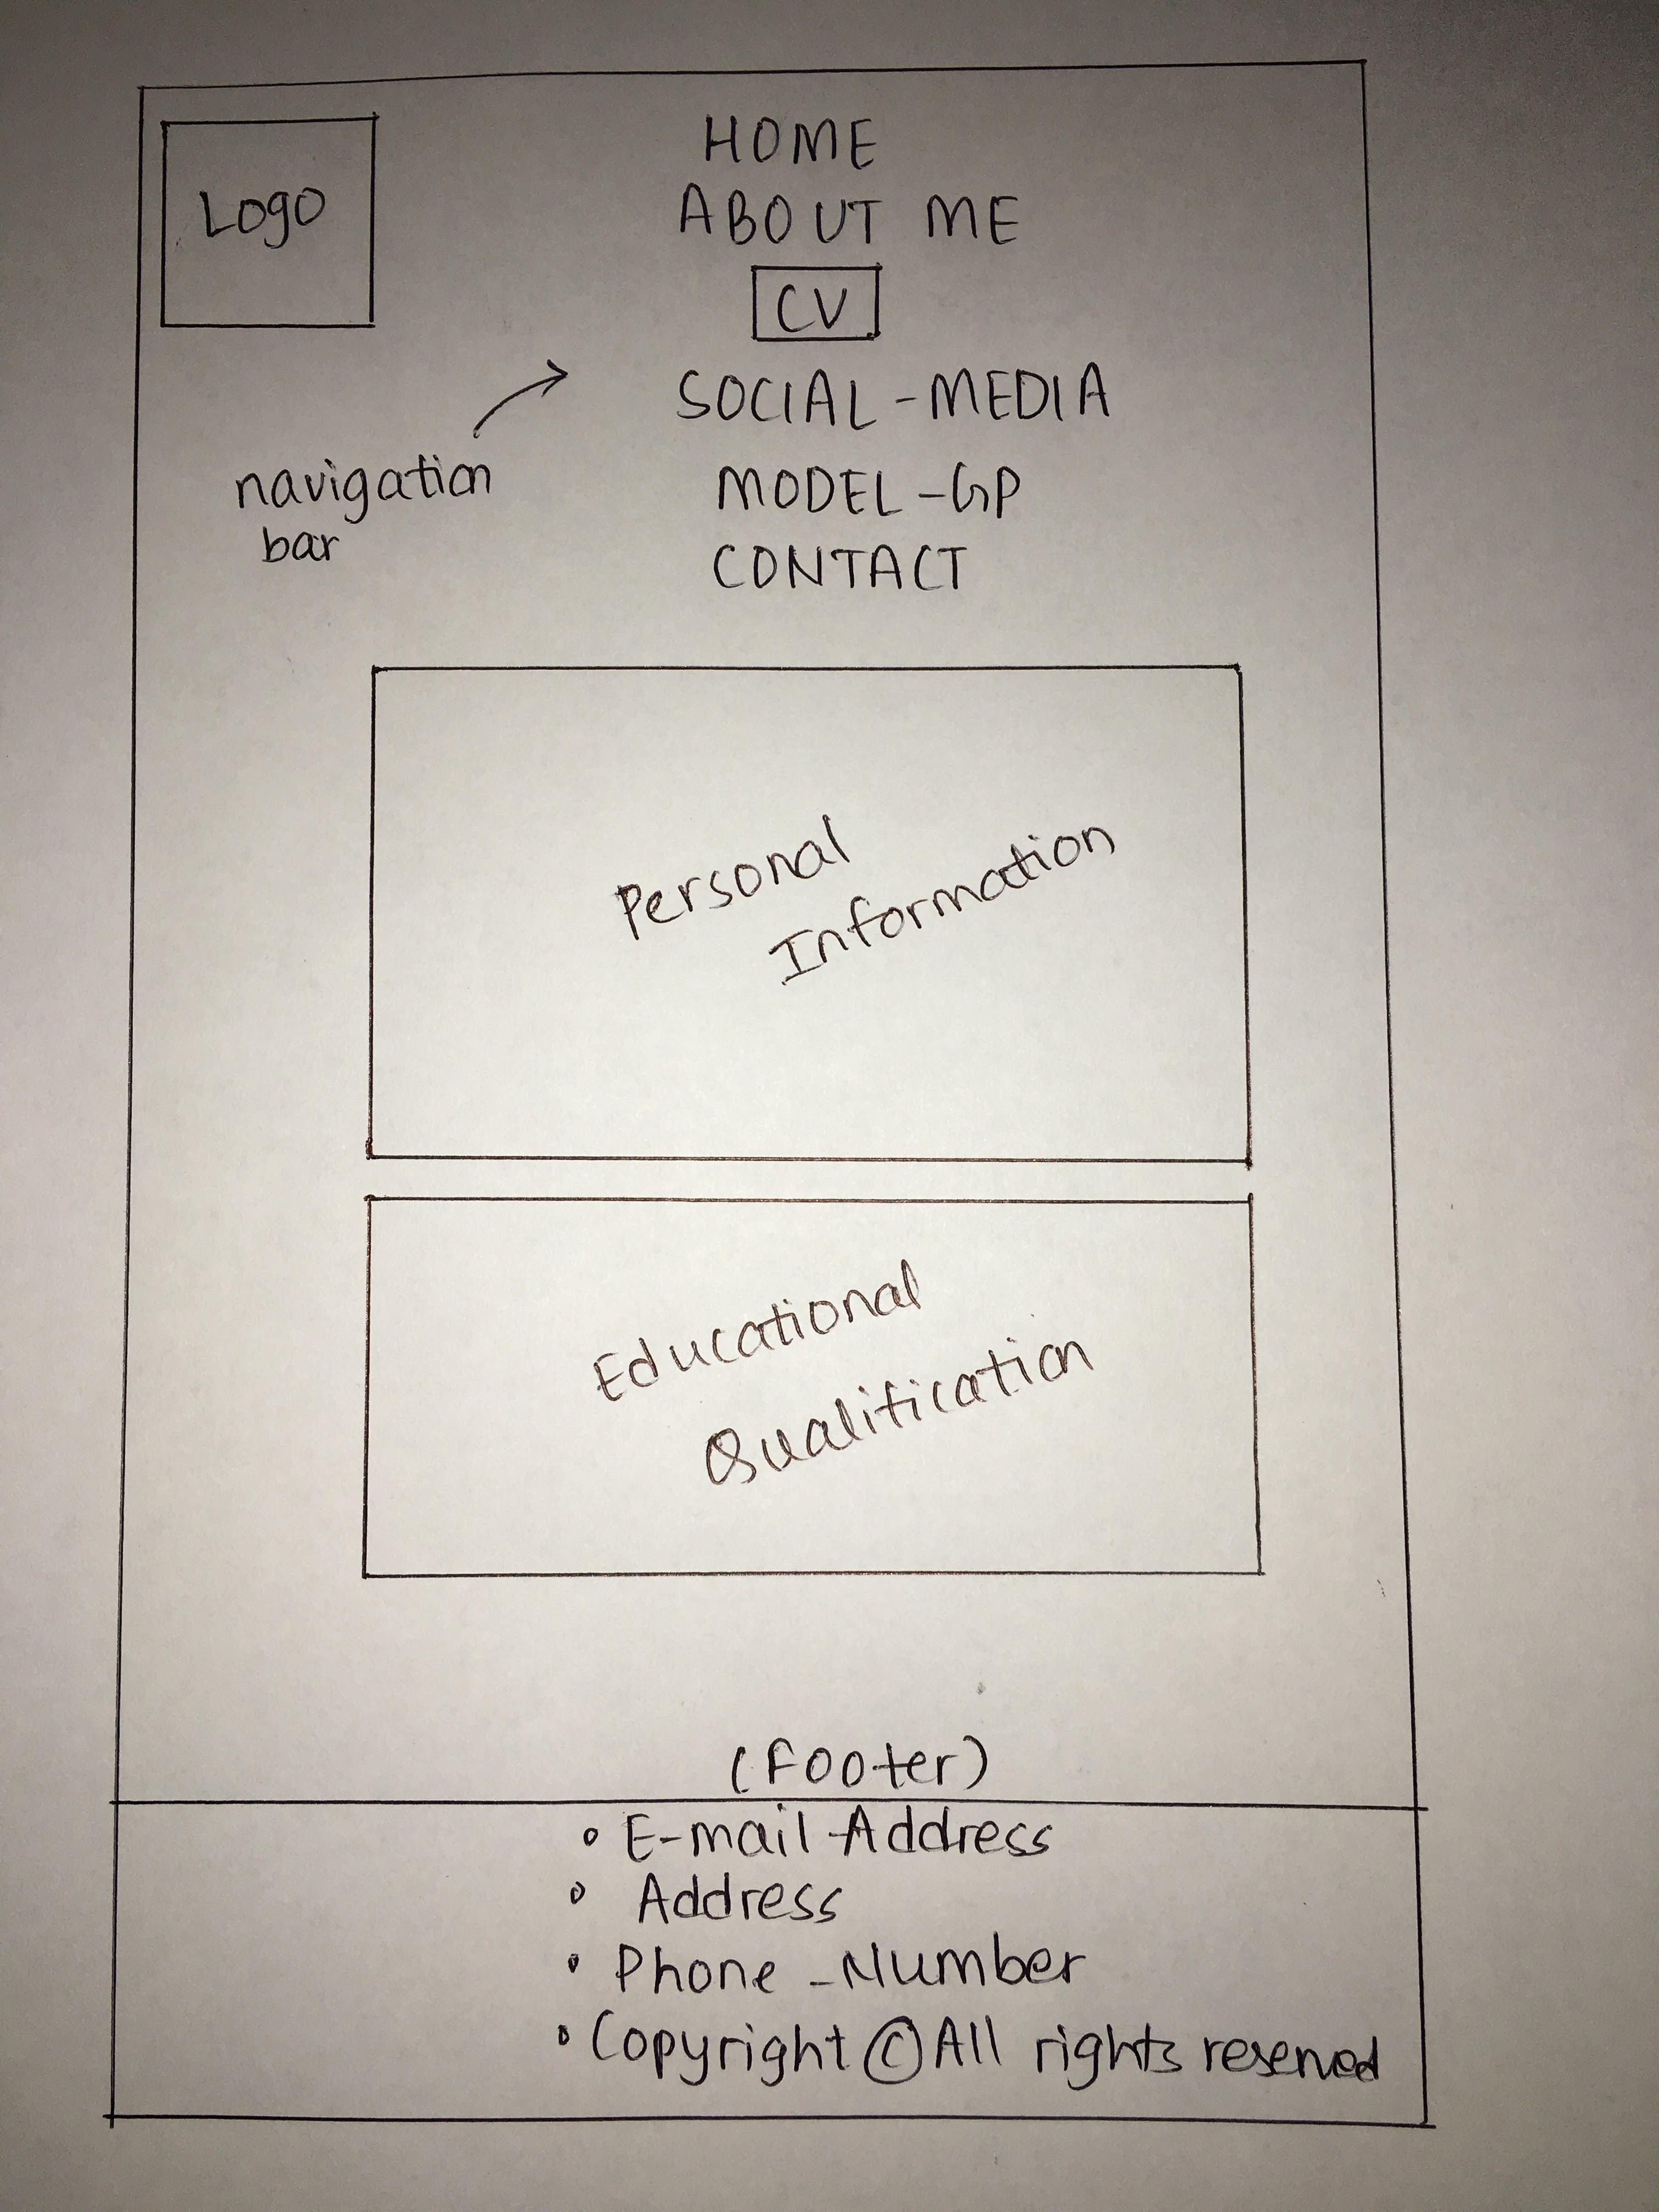 Logo
HOME
ABOUT ME
CV
SOCIAL-MEDIA
MODEL-GP
CONTACT
navigation
bar
Personal
Information
Educational
Qualification
(Footer)
• E-mail-Address
• Address
• Phone-Number
• Copyright © All rights reserved